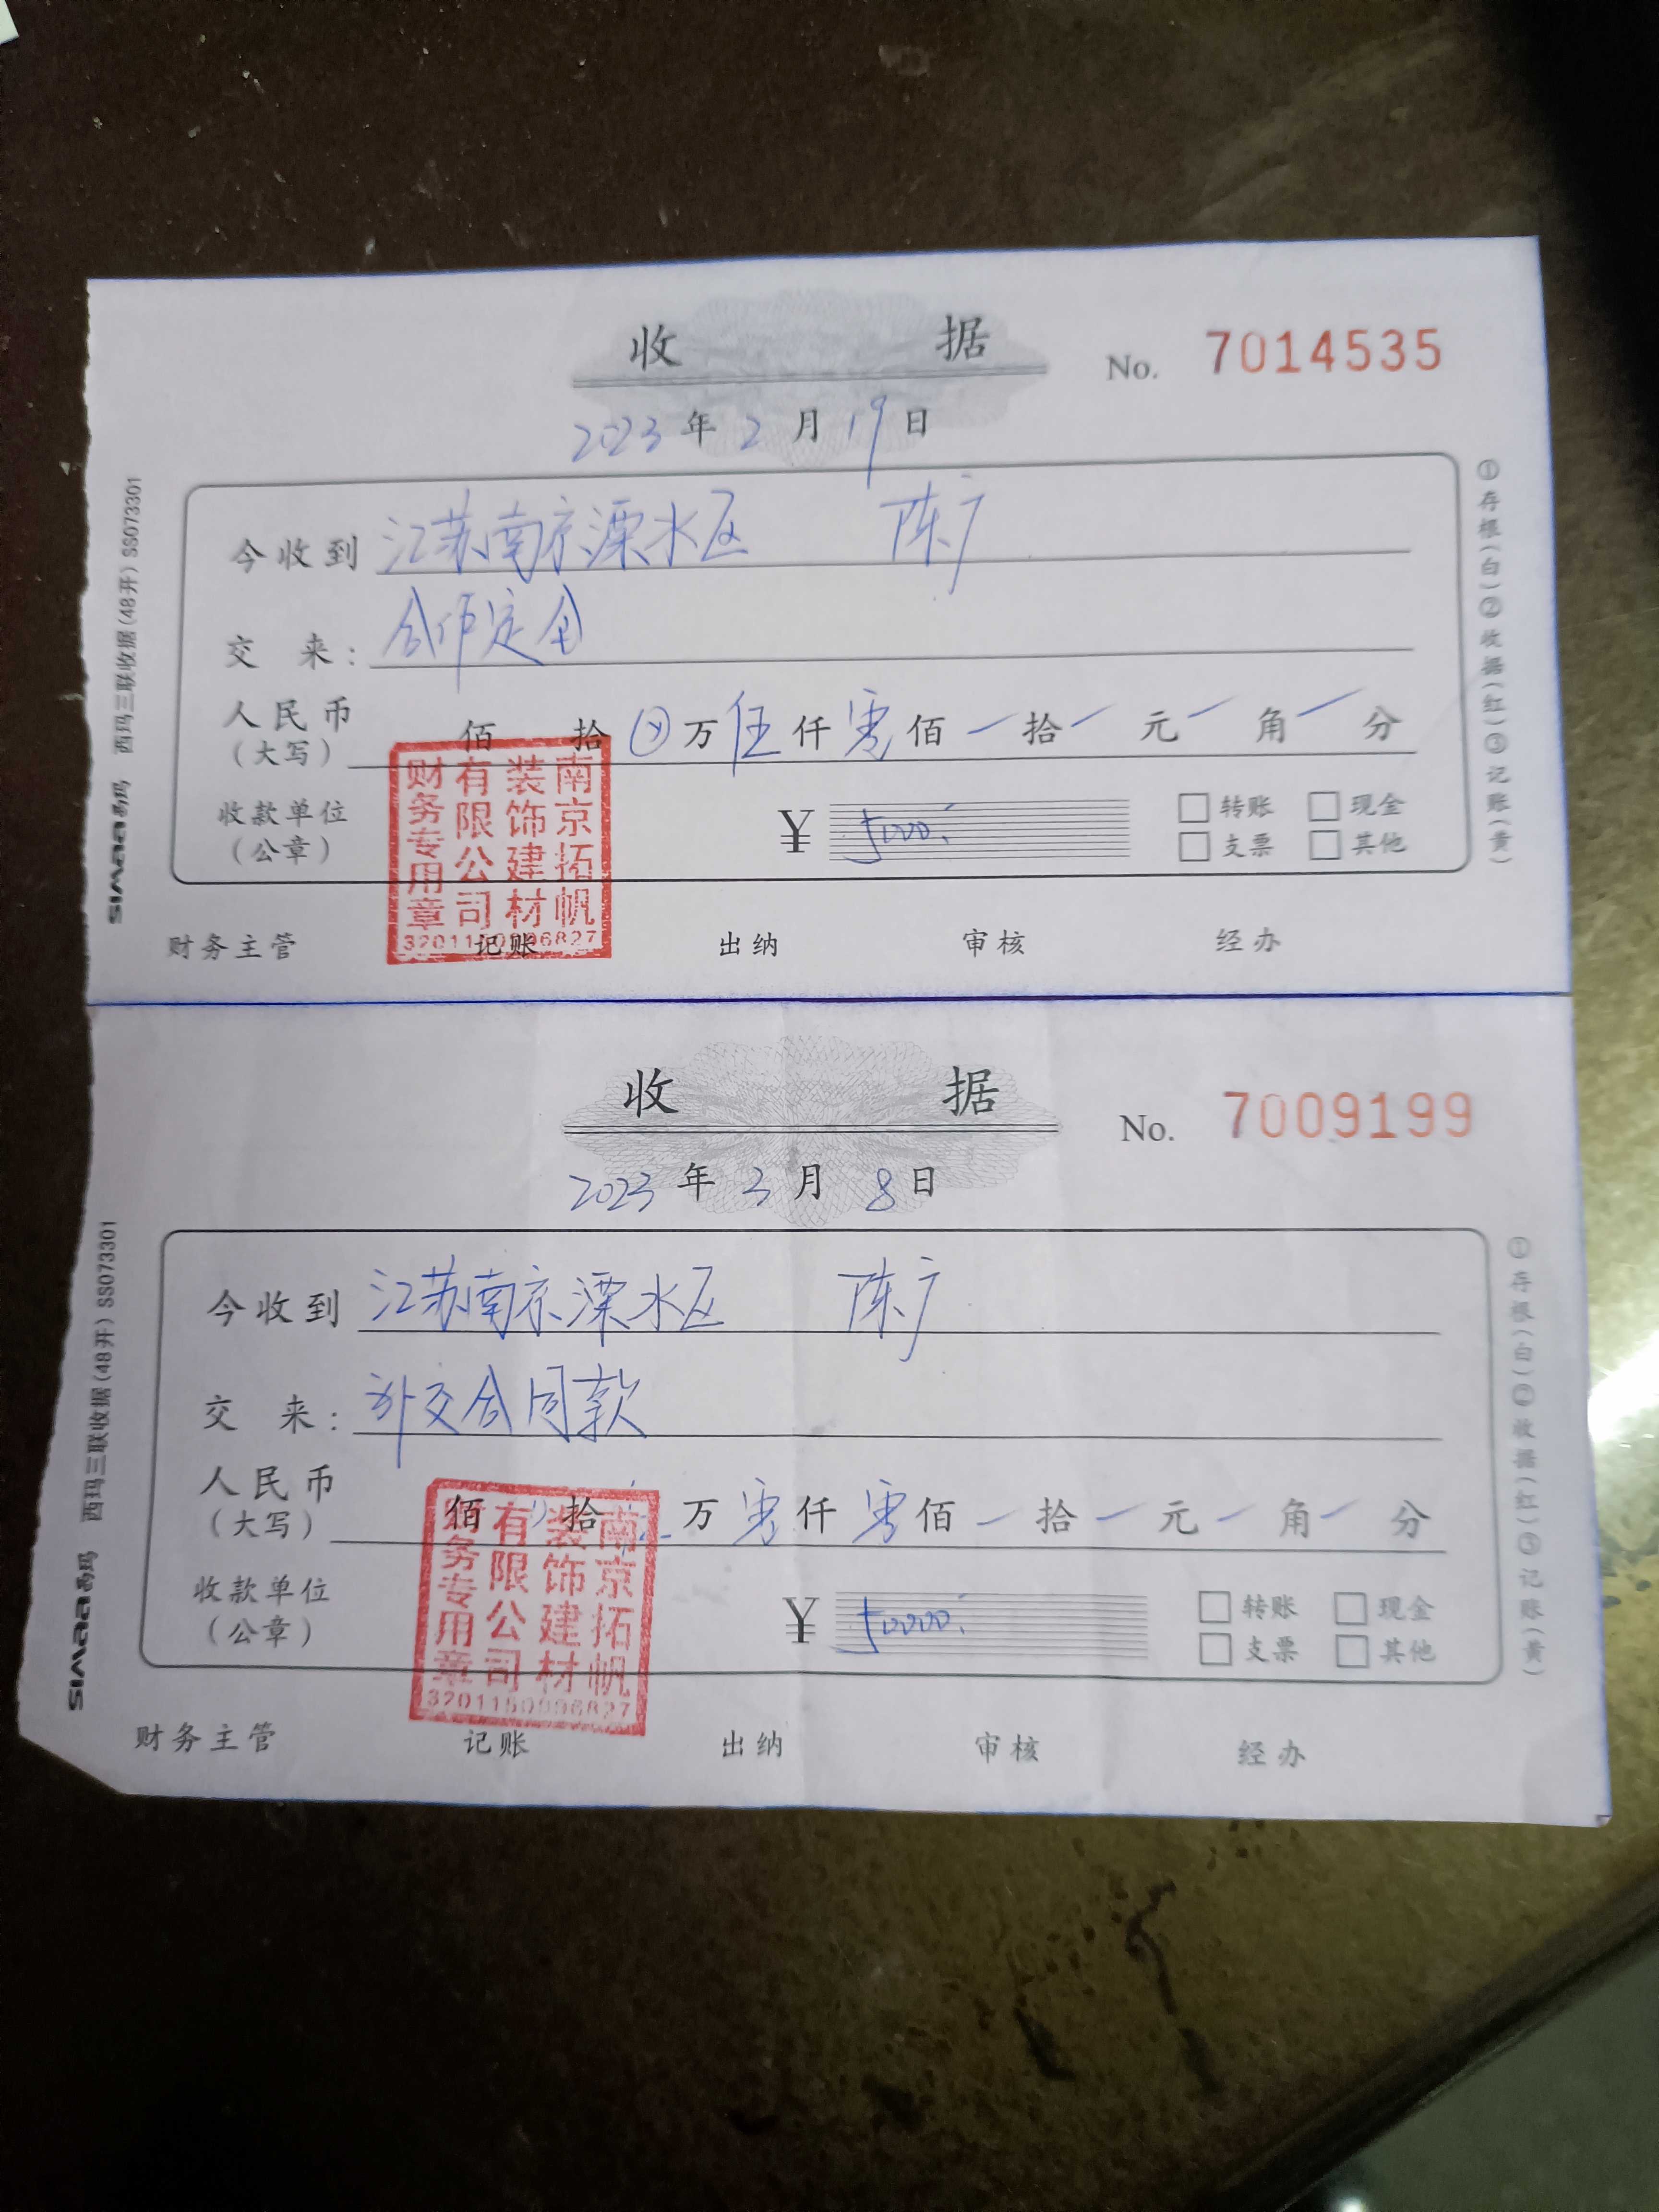 收 据
No. 7014535
2023 年 2 月 19 日
今收到 江苏南京溧水区 陈广
交 来: 合作定金
人民币
(大写)
佰 拾 万 伍 仟 零 佰 一 拾 一 元 一 角 一 分
收款单位
(公章)
¥ 5000.
转账 现金
支票 其他
财务主管 记账 出纳 审核 经办
南京拓帆
装饰建材
有限公司
财务专用章
SIMAA 西玛 西玛三联收据(48开) SS073301
①存根(白)②收据(红)③记账(黄)
收 据
No. 7009199
2023 年 3 月 8 日
今收到 江苏南京溧水区 陈广
交 来: 补交合同款
人民币
(大写)
佰 拾 万 零 仟 零 佰 一 拾 一 元 一 角 一 分
收款单位
(公章)
¥ 50000.
转账 现金
支票 其他
财务主管 记账 出纳 审核 经办
南京拓帆
装饰建材
有限公司
财务专用章
SIMAA 西玛 西玛三联收据(48开) SS073301
①存根(白)②收据(红)③记账(黄)